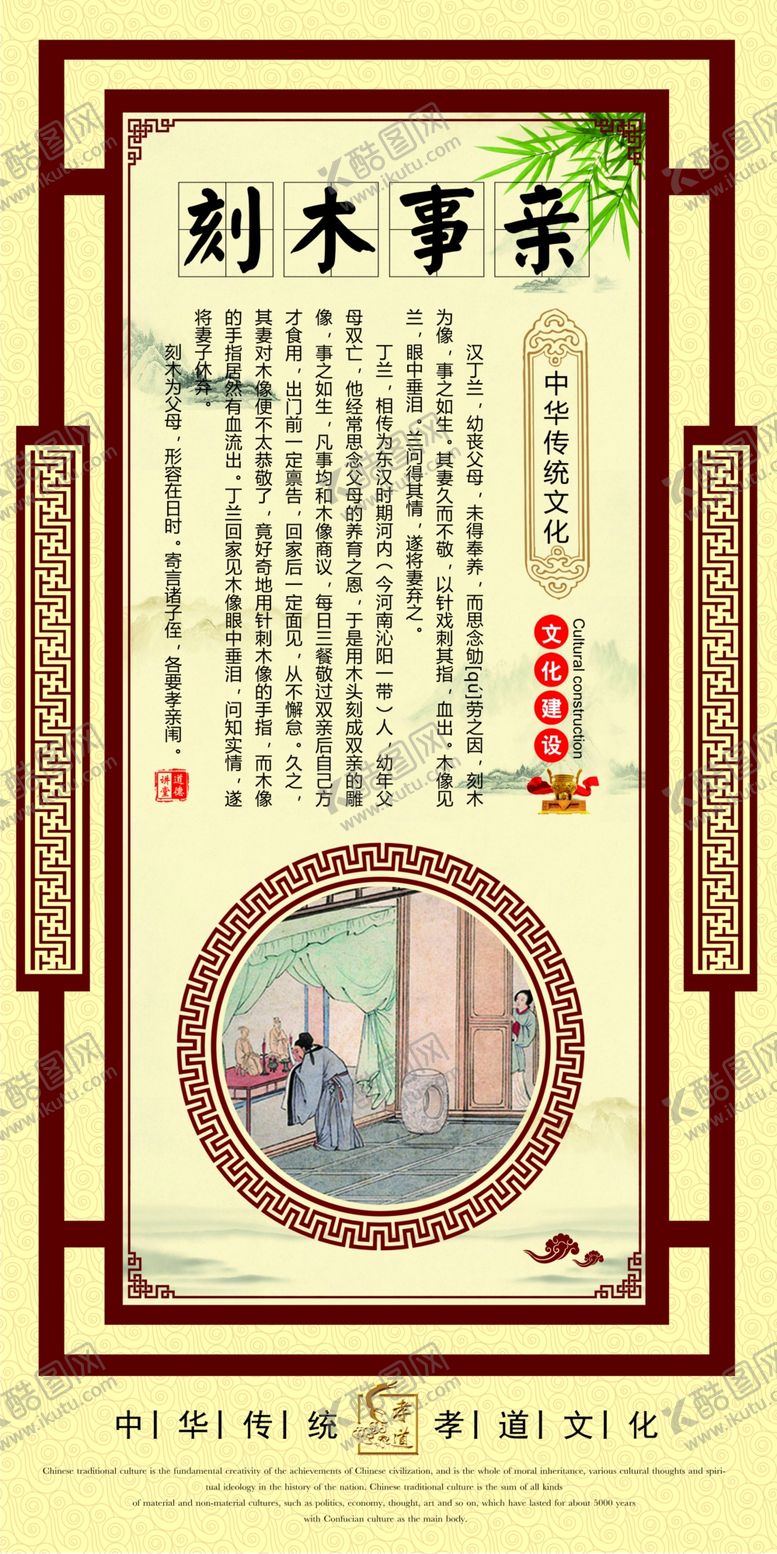 刻木事亲
中华传统文化
文化建设
Cultural construction
汉丁兰，幼丧父母，未得奉养，而思念劬[qú]劳之因，刻木
为像，事之如生。其妻久而不敬，以针戏刺其指，血出。木像见
兰，眼中垂泪。兰问得其情，遂将妻弃之。
丁兰，相传为东汉时期河内（今河南沁阳一带）人，幼年父
母双亡，他经常思念父母的养育之恩，于是用木头刻成双亲的雕
像，事之如生，凡事均和木像商议，每日三餐敬过双亲后自己方
才食用，出门前一定禀告，回家后一定面见，从不懈怠。久之，
其妻对木像便不太恭敬了，竟好奇地用针刺木像的手指，而木像
的手指居然有血流出。丁兰回家见木像眼中垂泪，问知实情，遂
将妻子休弃。
刻木为父母，形容在日时。寄言诸子侄，各要孝亲闱。
道德
讲堂
中|华|传|统 孝道 孝|道|文|化
Chinese traditional culture is the fundamental creativity of the achievements of Chinese civilization, and is the whole of moral inheritance, various cultural thoughts and spiri-
tual ideology in the history of the nation. Chinese traditional culture is the sum of all kinds
of material and non-material cultures, such as politics, economy, thought, art and so on, which have lasted for about 5000 years
with Confucian culture as the main body.
酷图网
www.ikutu.com